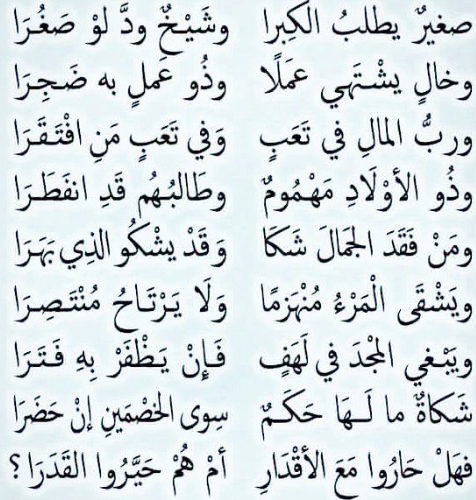 صغيرٌ يطلبُ الكِبرا وشَيْخٌ ودَّ لوْ صَغُرَا
وخالٍ يشْتَهي عمَلًا وذُو عَملٍ به ضَجِرَا
وربُّ المالِ في تَعَبٍ وَفي تَعَبٍ مَنِ افْتَقَرَا
وذُو الأوْلَادِ مَهْمُومٌ وطَالبُهُم قَدِ انفَطَرَا
ومَنْ فَقَدَ الجَمالَ شَكَا وَقَدْ يشْكُو الذِي بَهَرَا
ويَشْقَى الْمَرْءُ مُنْهَزِمًا وَلَا يَرْتَاحُ مُنْتَصِرَا
ويَبْغي المْجْدَ في لَهَفٍ فَإِنْ يَظْفَرْ بِهِ فَتَرَا
شَكاةٌ ما لَهَا حَكَمٌ سِوى الخَصْمَينِ إنْ حَضَرَا
فهَلْ حَارُوا مَعَ الأقْدَارِ أمْ هُمْ حَيَّرُوا القَدَرَا؟